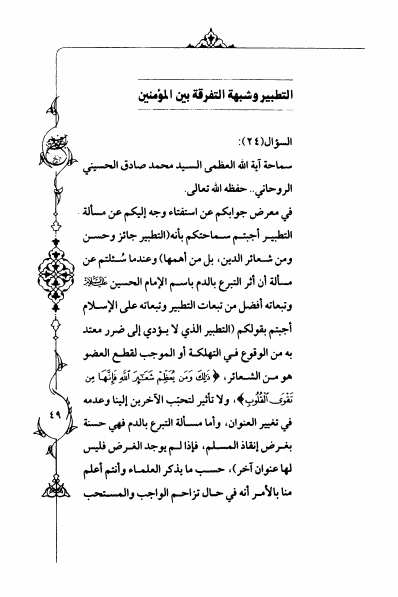 التطبير وشبهة التفرقة بين المؤمنين
السؤال(٢٤):
سماحة آية الله العظمى السيد محمد صادق الحسيني
الروحاني.. حفظه الله تعالى.
في معرض جوابكم عن استفتاء وجه إليكم عن مسألة
التطبير أجبتم سماحتكم بأنه(التطبير جائز وحسن
ومن شعائر الدين، بل من أهمها) وعندما سُئلتم عن
مسألة أن أثر التبرع بالدم باسم الإمام الحسين عليه السلام
وتبعاته أفضل من تبعات التطبير وتبعاته على الإسلام
أجبتم بقولكم (التطبير الذي لا يؤدي إلى ضرر معتد
به من الوقوع في التهلكة أو الموجب لقطع العضو
هو من الشعائر، ﴿ذَلِكَ وَمَن يُعَظِّمْ شَعَائِرَ اللَّهِ فَإِنَّهَا مِن
تَقْوَى الْقُلُوبِ﴾، ولا تأثير لتحبّب الآخرين إلينا وعدمه
في تغيير العنوان، وأما مسألة التبرع بالدم فهي حسنة
بغرض إنقاذ المسلم، فإذا لم يوجد الغرض فليس
لها عنوان آخر)، حسب ما يذكر العلماء وأنتم أعلم
منا بالأمر أنه في حال تزاحم الواجب والمستحب
٤٩